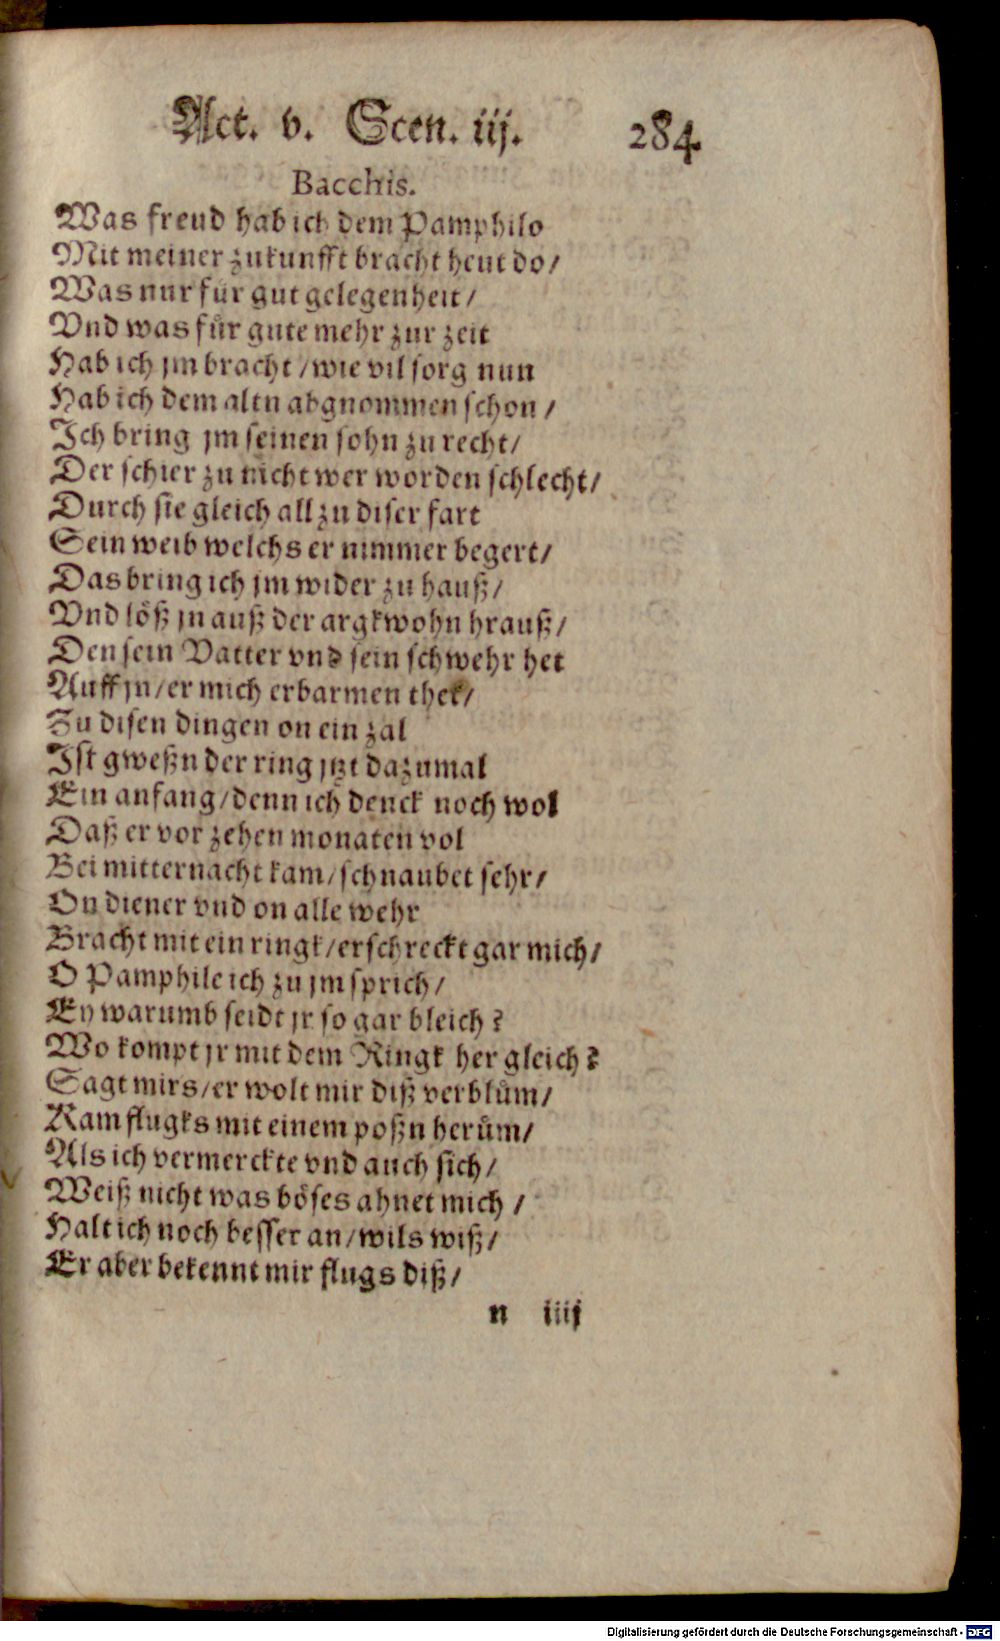 Act. v. Scen. iij. 284.
Bacchis.
Was freud hab ich dem Pamphilo
Mit meiner zukunfft bracht heut do/
Was nur für gut gelegenheit/
Vnd was für gute mehr zur zeit
Hab ich jm bracht/wie vil sorg nun
Hab ich dem altn abgnommen schon/
Ich bring jm seinen sohn zu recht/
Der schier zu nicht wer worden schlecht/
Durch sie gleich all zu diser fart
Sein weib welchs er nimmer begert/
Das bring ich jm wider zu hauß/
Vnd löß jn auß der argkwohn hrauß/
Den sein Vatter vnd sein schwehr het
Auff jn/er mich erbarmen thet/
Zu disen dingen on ein zal
Ist gweßn der ring jtzt dazumal
Ein anfang/denn ich denck noch wol
Daß er vor zehen monaten vol
Bei mitternacht kam/schnaubet sehr/
On diener vnd on alle wehr
Bracht mit ein ringk/erschreckt gar mich/
O Pamphile ich zu jm sprich/
Ey warumb seidt jr so gar bleich?
Wo kompt jr mit dem Ringk her gleich?
Sagt mirs/er wolt mir diß verblům/
Kam flugks mit einem poßn herům/
Als ich vermerckte vnd auch sich/
Weiß nicht was böses ahnet mich/
Halt ich noch besser an/wils wiß/
Er aber bekennt mir flugs diß/
n iiij
Digitalisierung gefördert durch die Deutsche Forschungsgemeinschaft - DFG